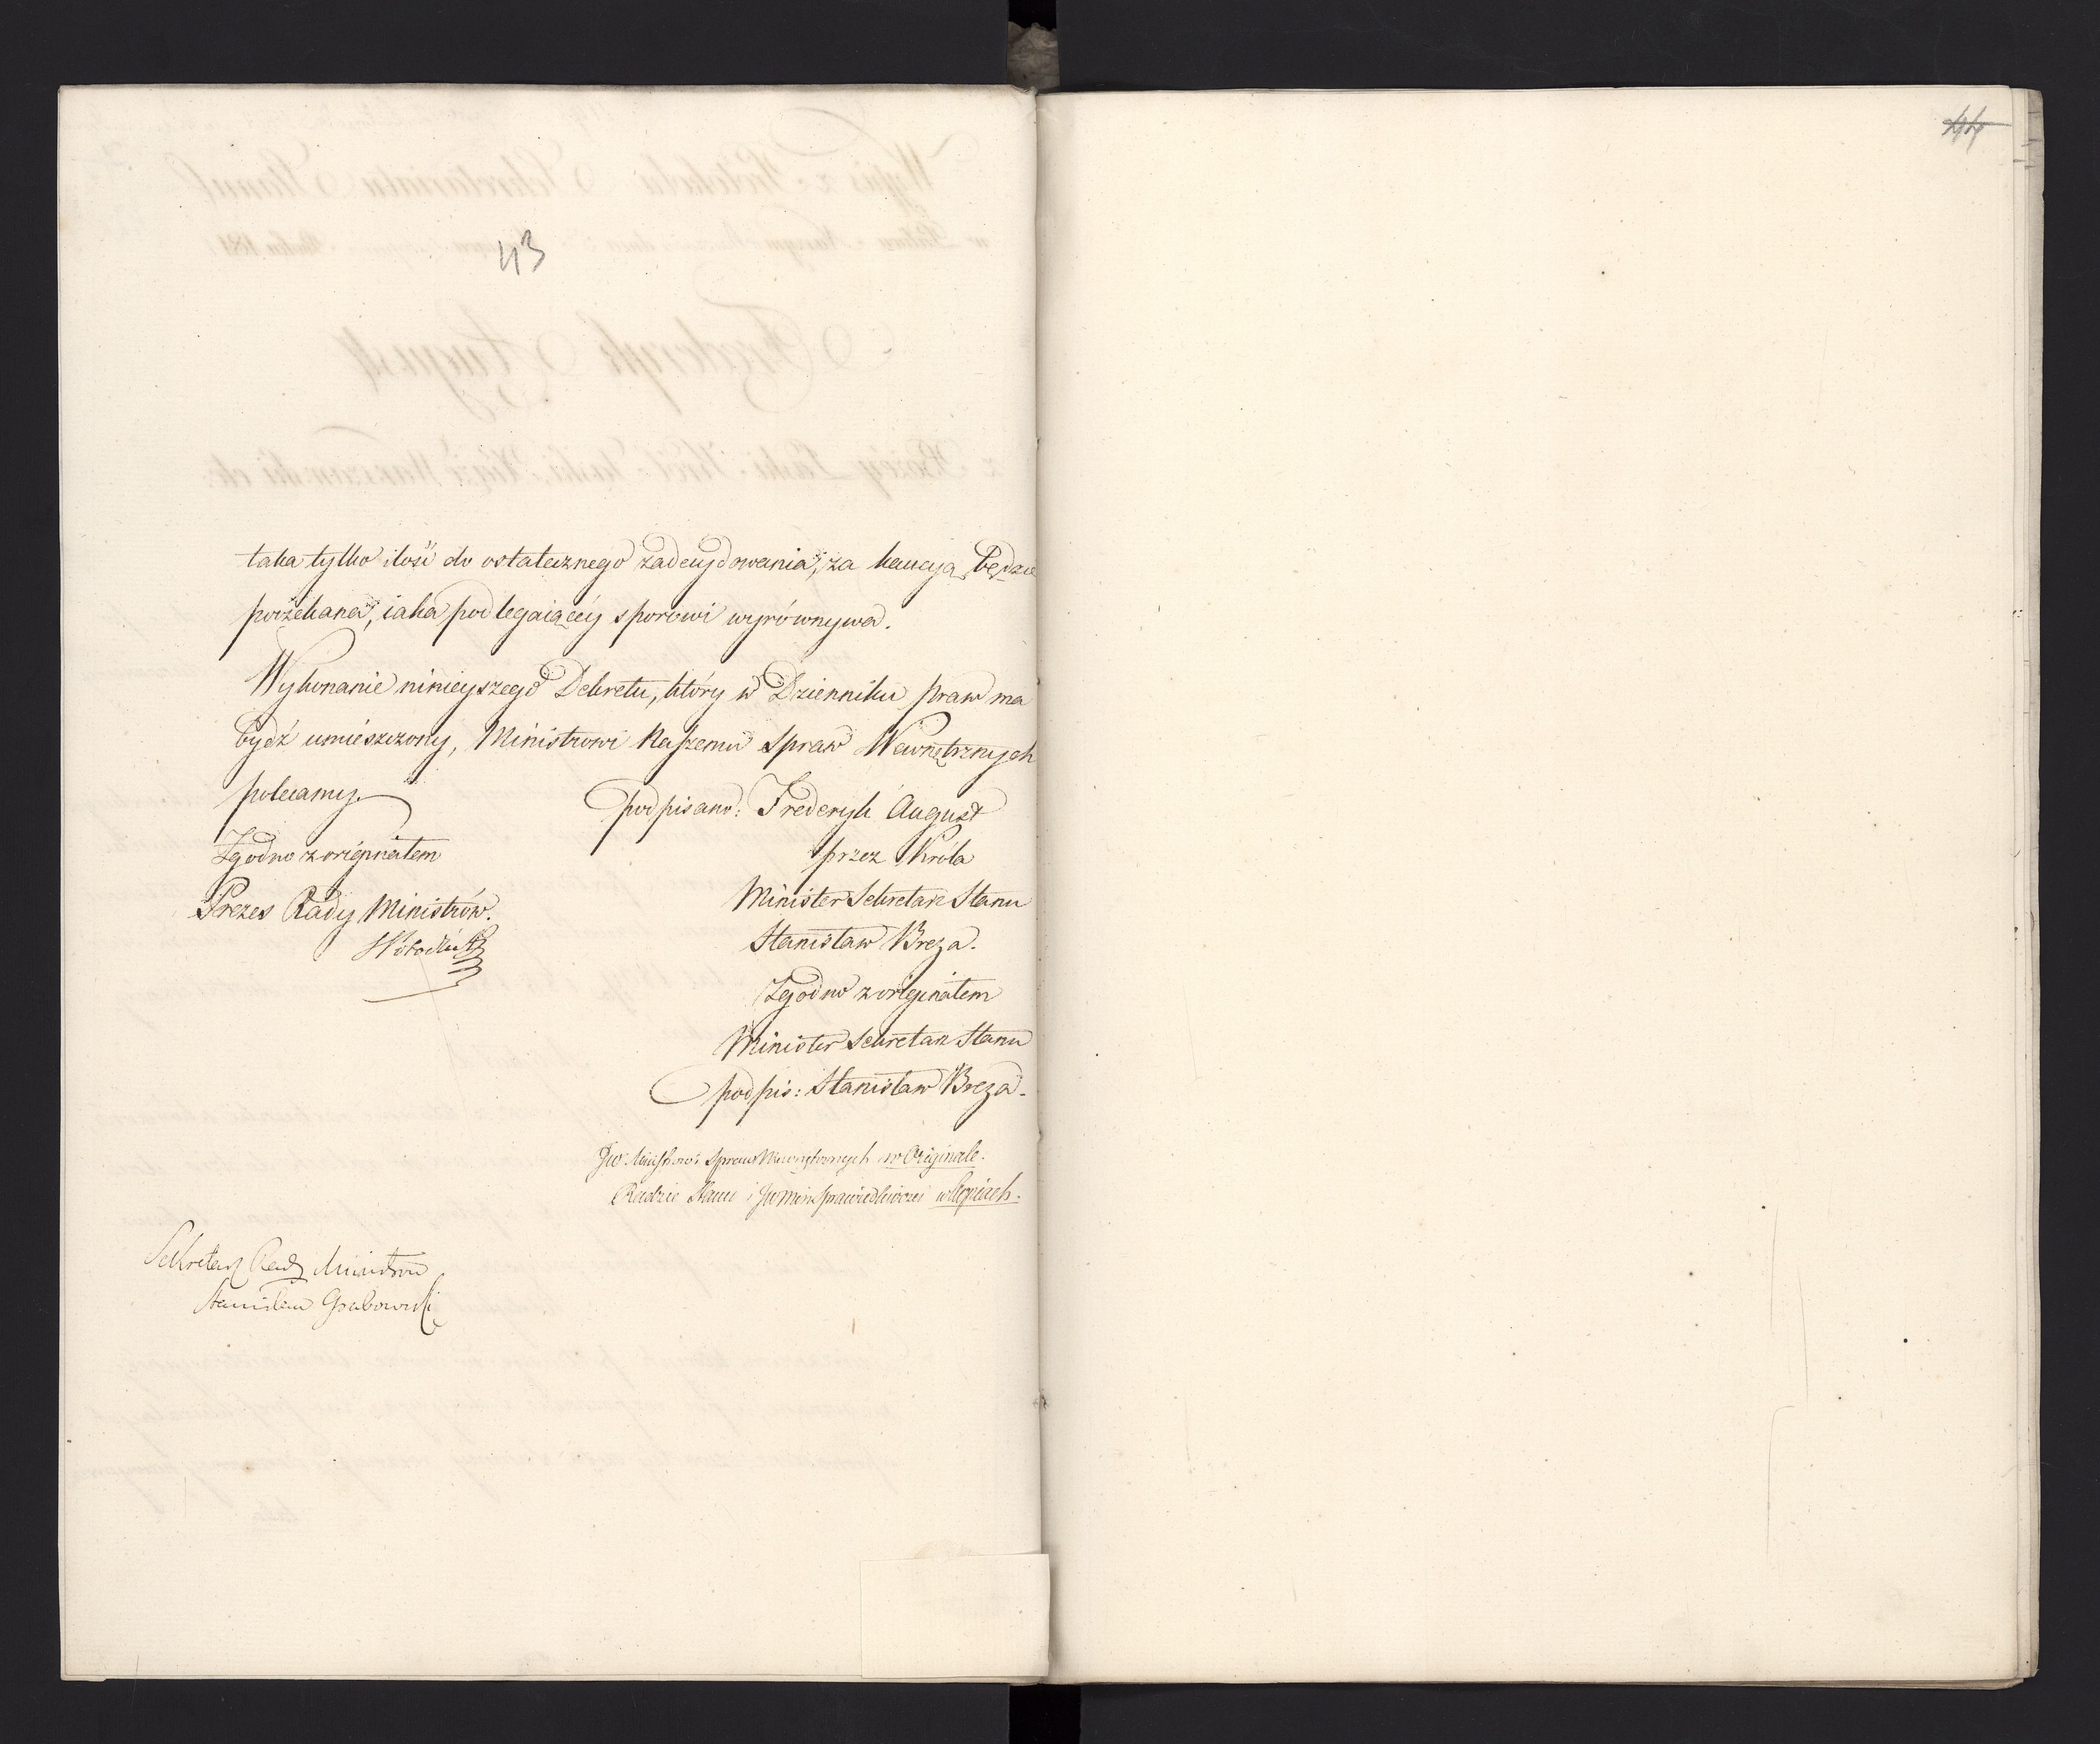 43
taka tylko ilość do ostatecznego zadecydowania, za kaucyą będzie
poizekana, iaka podlegaiącéy sporowi wyrównywa.
Wykonanie ninieyszego Dekretu, który w Dzienniku praw ma
bydź umieszczony, Ministrowi Naszemu Spraw Wewnętrznych
polecamy.
podpisano: Frederyk August
przez Króla
Minister Sekretarz Stanu
Stanisław Breza.
Zgodno z originałem
Minister Sekretarz Stanu
podpis: Stanisław Breza.
Zgodno z originałem
Prezes Rady Ministrów.
JW. Ministrowi Spraw Wewnętrznych w Originale.
Radzie Stanu i JW Min: Sprawiedliwości w kopiach.
Sekretarz Rady Ministrów
Stanisław Grabowski
44